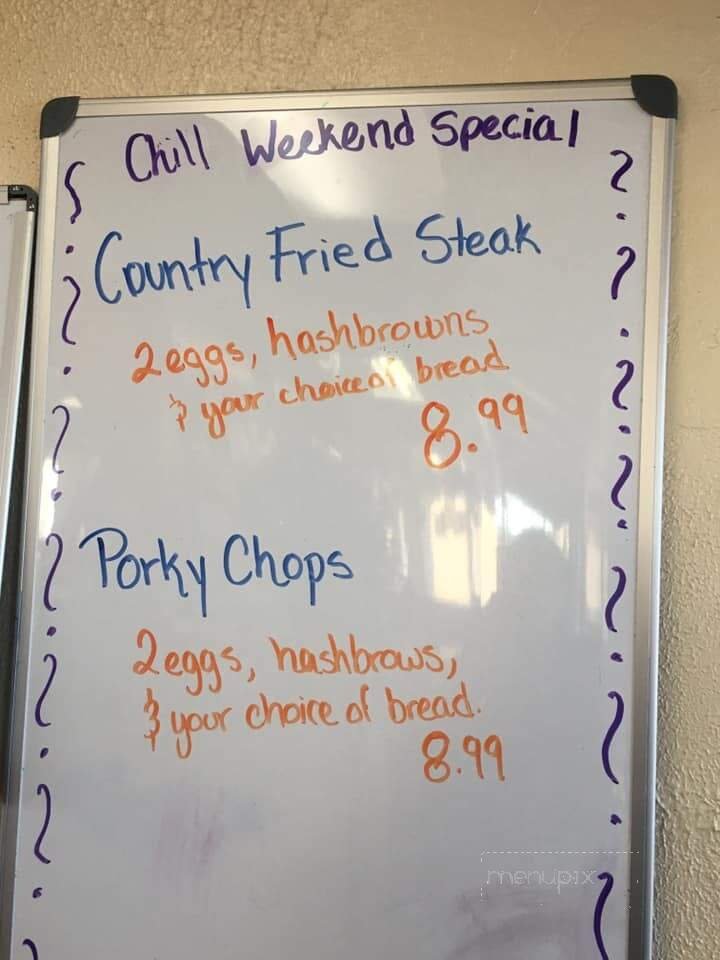 Chill Weekend Special
Country Fried Steak
2 eggs, hashbrowns
& your choice of bread
8.99
Porky Chops
2 eggs, hashbrows,
& your choice of bread.
8.99
menupix